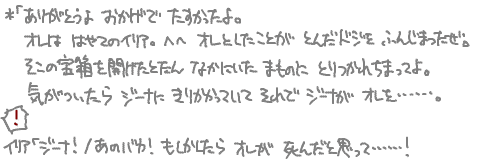 *「ありがとうよ おかげで たすかったよ。
オレは はやてのイリア。へへ オレとしたことが とんだドジを ふんじまったぜ。
そこの宝箱を開けたとたん なかにいた まものに とりつかれちまってよ。
気がついたら ジーナに きりかかっていて それで ジーナが オレを‥‥‥。
!
イリア「ジーナ!/あのバカ! もしかしたら オレが 死んだと思って‥‥‥!